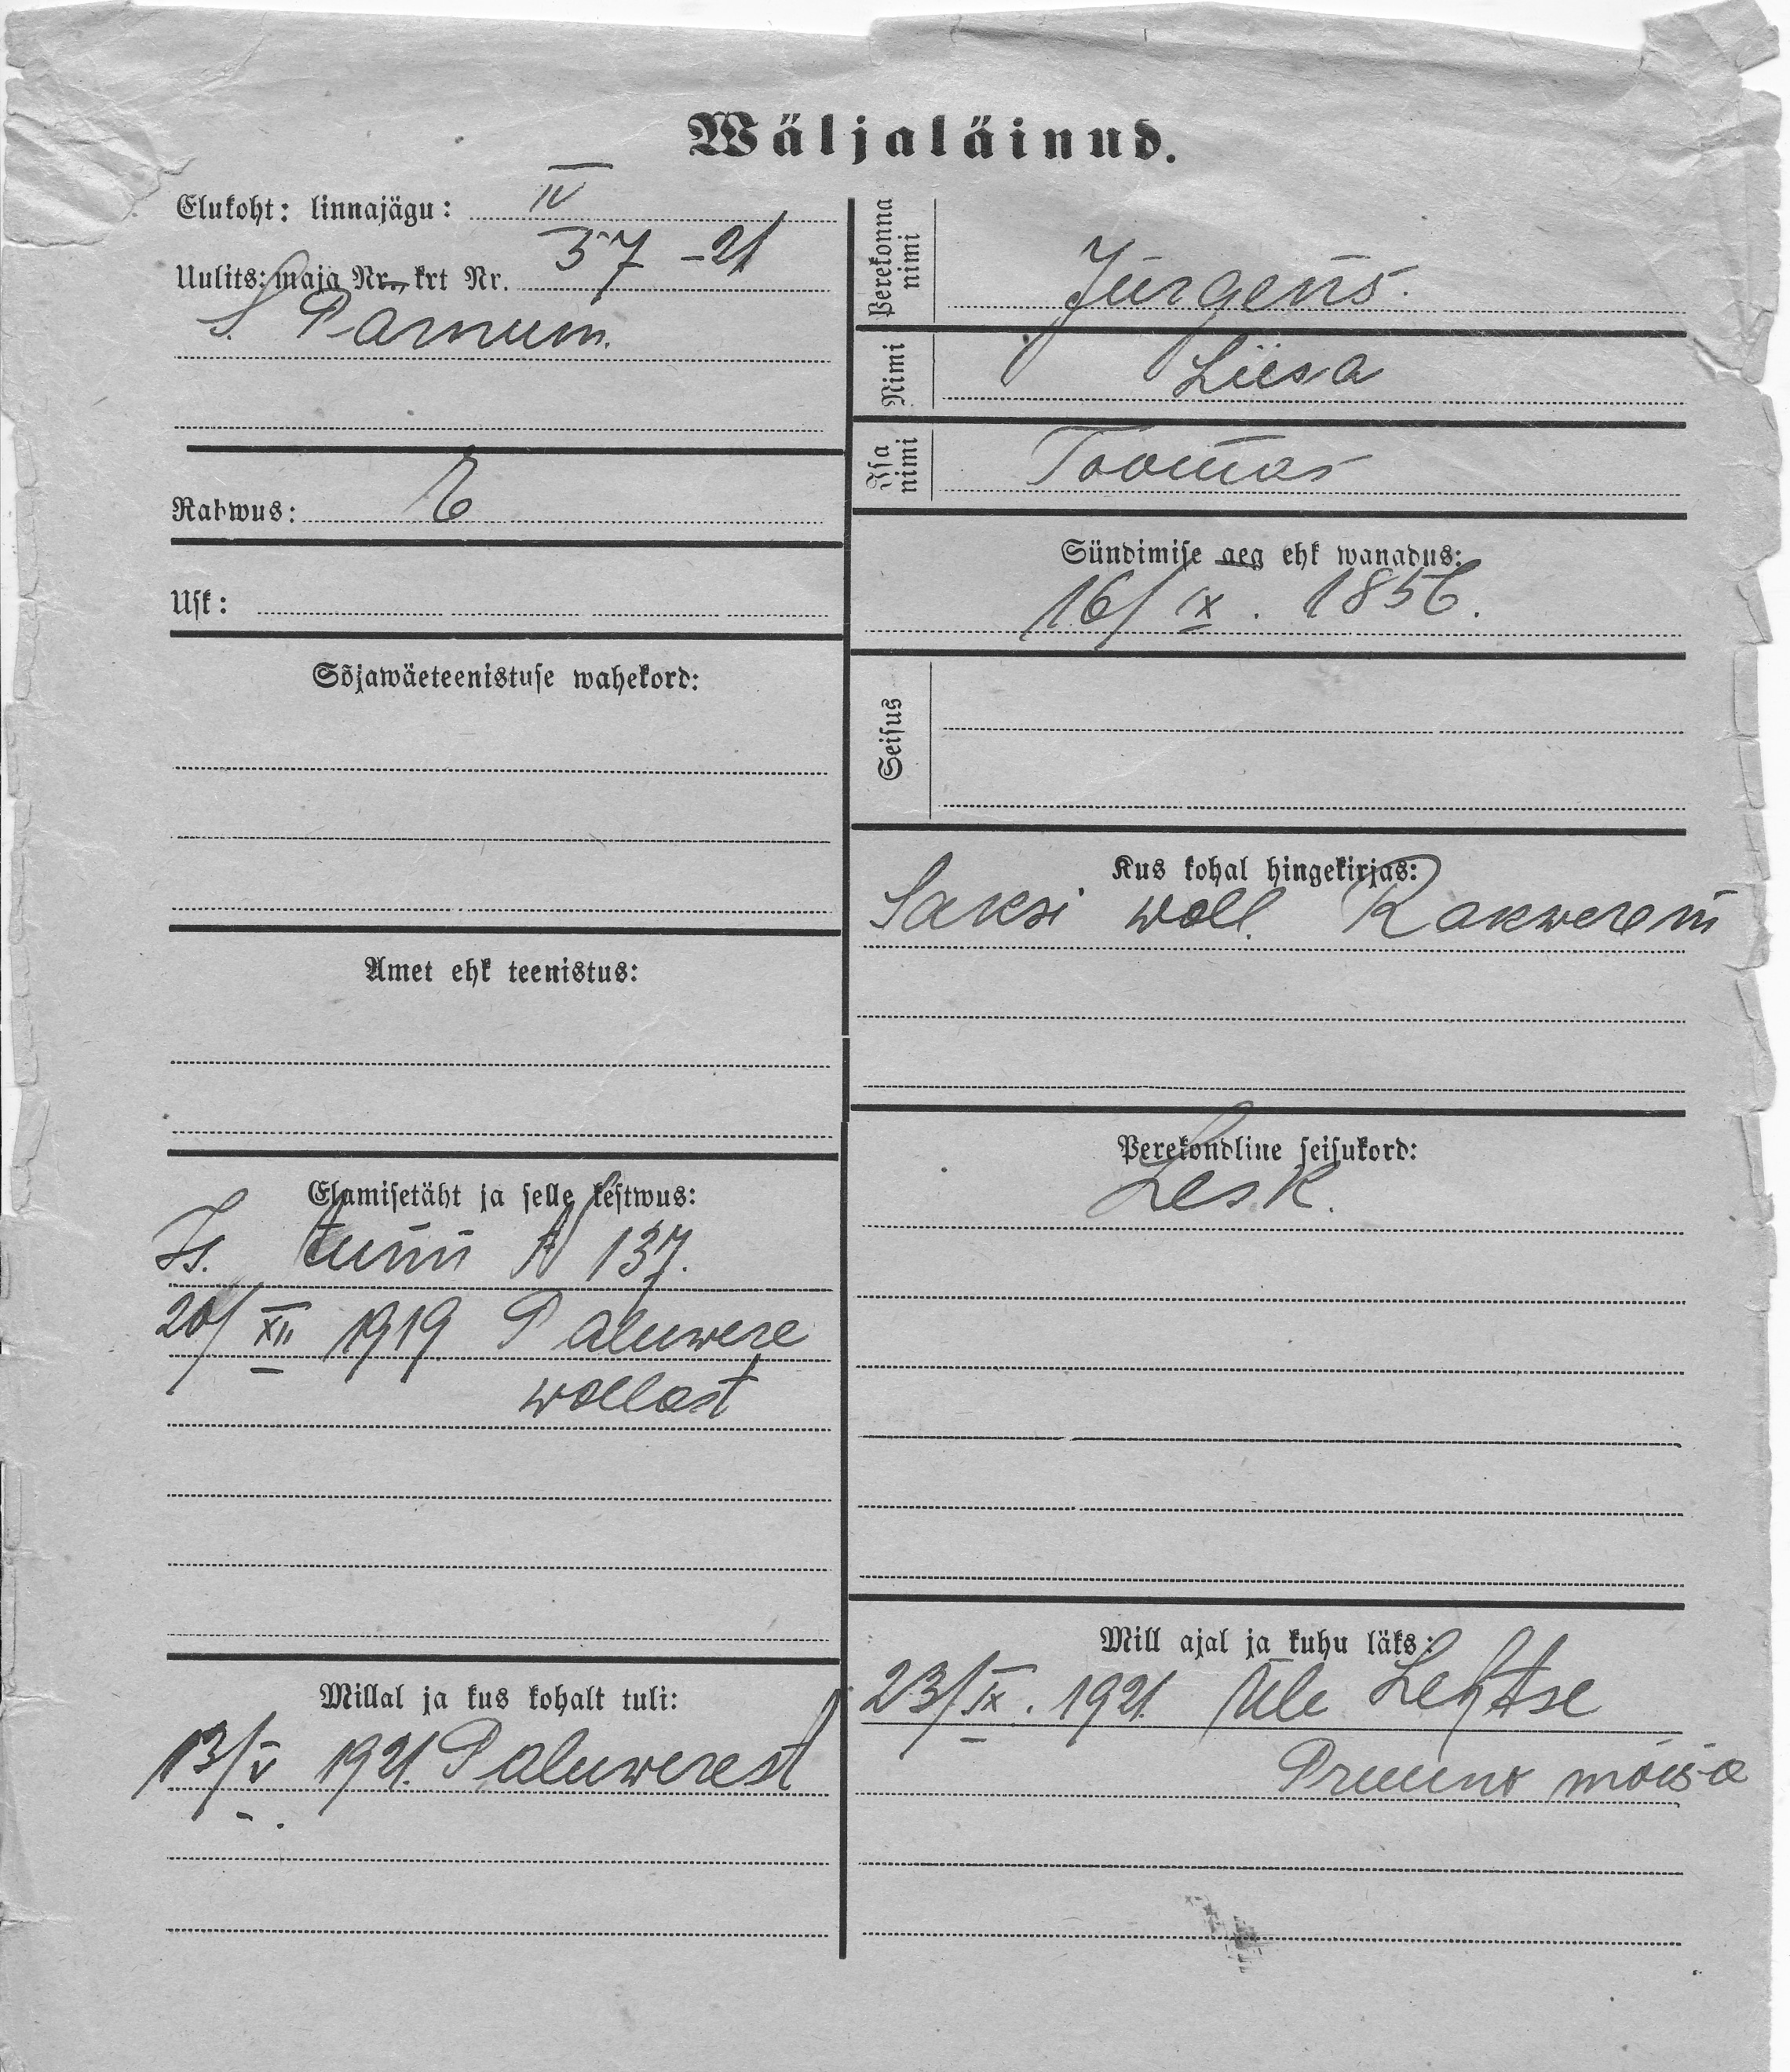 Wäljaläinud.
Elukoht: linnajägu: IV
Uulits: maja Nr., krt Nr. 37 - 21
S. Pärnu m.
Rahwus: E
Usk:
Sõjawäeteenistuse wahekord:
Amet ehk teenistus:
Elamisetäht ja selle kestwus:
Is. tunn N 137.
20/XII 1919 Paluwere
wallast
Millal ja kus kohalt tuli:
13/V 1921. Paluwerest
Perekonna nimi Jürgens.
Nimi Liisa
Isa nimi Toomas
Sündimise aeg ehk wanadus:
16/IX. 1856.
Seisus
Kus kohal hingekirjas:
Saksi wall. Rakwere m
Perekondline seisukord:
Lesk.
Mill ajal ja kuhu läks:
23/IX. 1921. üle Lehtse
Pruuna mõisa